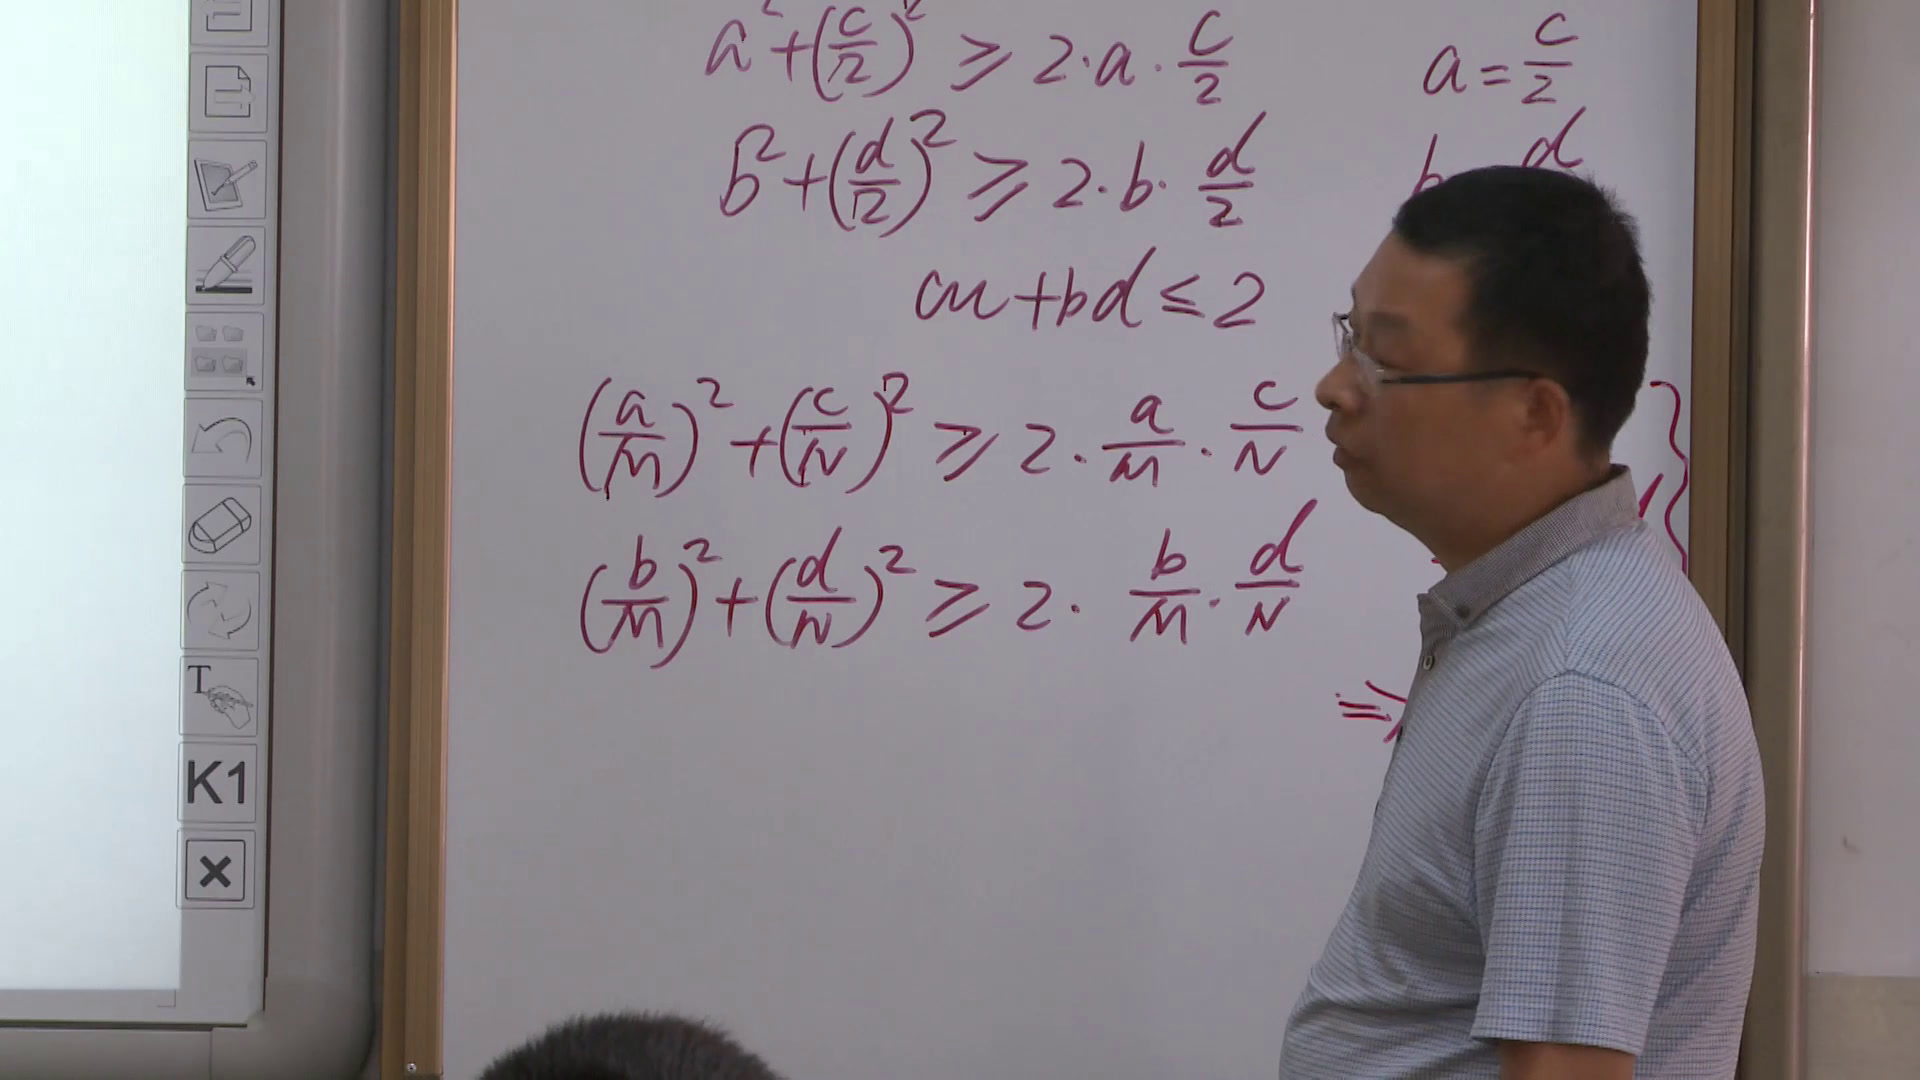 a²+(c/2)² ≥ 2·a·c/2 a=c/2
b²+(d/2)² ≥ 2·b·d/2 b d
ac+bd≤2
(a/M)²+(c/N)² ≥ 2·a/M·c/N
(b/M)²+(d/N)² ≥ 2·b/M·d/N
⇒
T
K1